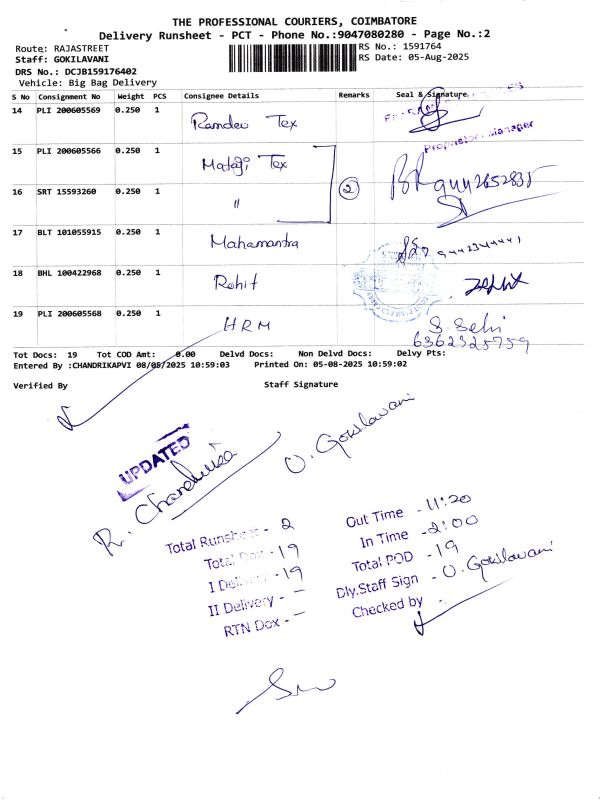 THE PROFESSIONAL COURIERS, COIMBATORE
Delivery Runsheet - PCT - Phone No.:9047080280 - Page No.:2
Route: RAJASTREET RS No.: 1591764
Staff: GOKILAVANI RS Date: 05-Aug-2025
DRS No.: DCJB159176402
Vehicle: Big Bag Delivery
S No Consignment No Weight PCS Consignee Details Remarks Seal & Signature
14 PLI 200605569 0.250 1 Ramdev Tex
Proprietor / Manager
15 PLI 200605566 0.250 1 Mataji Tex
2
16 SRT 15593260 0.250 1 "
17 BLT 101055915 0.250 1 Mahamantra
18 BHL 100422968 0.250 1 Rohit
19 PLI 200605568 0.250 1 HRM S. Selvi
6362325759
Tot Docs: 19 Tot COD Amt: 0.00 Delvd Docs: Non Delvd Docs: Delvy Pts:
Entered By :CHANDRIKAPVI 08/05/2025 10:59:03 Printed On: 05-08-2025 10:59:02
Verified By Staff Signature
UPDATED
R. Chandrika
U. Gokilavani
Total Runsheet - 2 Out Time - 11:20
Total Dox - 19 In Time - 2:00
I Delivery - 19 Total POD - 19
II Delivery - — Dly.Staff Sign - U. Gokilavani
RTN Dox - — Checked by -